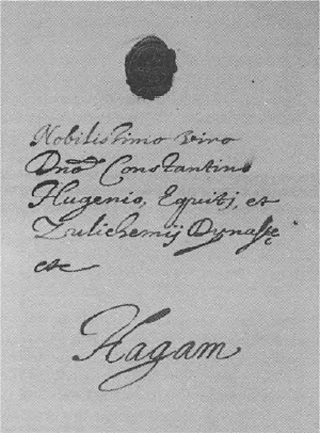 Nobilissimo viro
Dno Constantino
Hugenio, Equiti, et
Zulichemij Dynastę
etc
Hagam